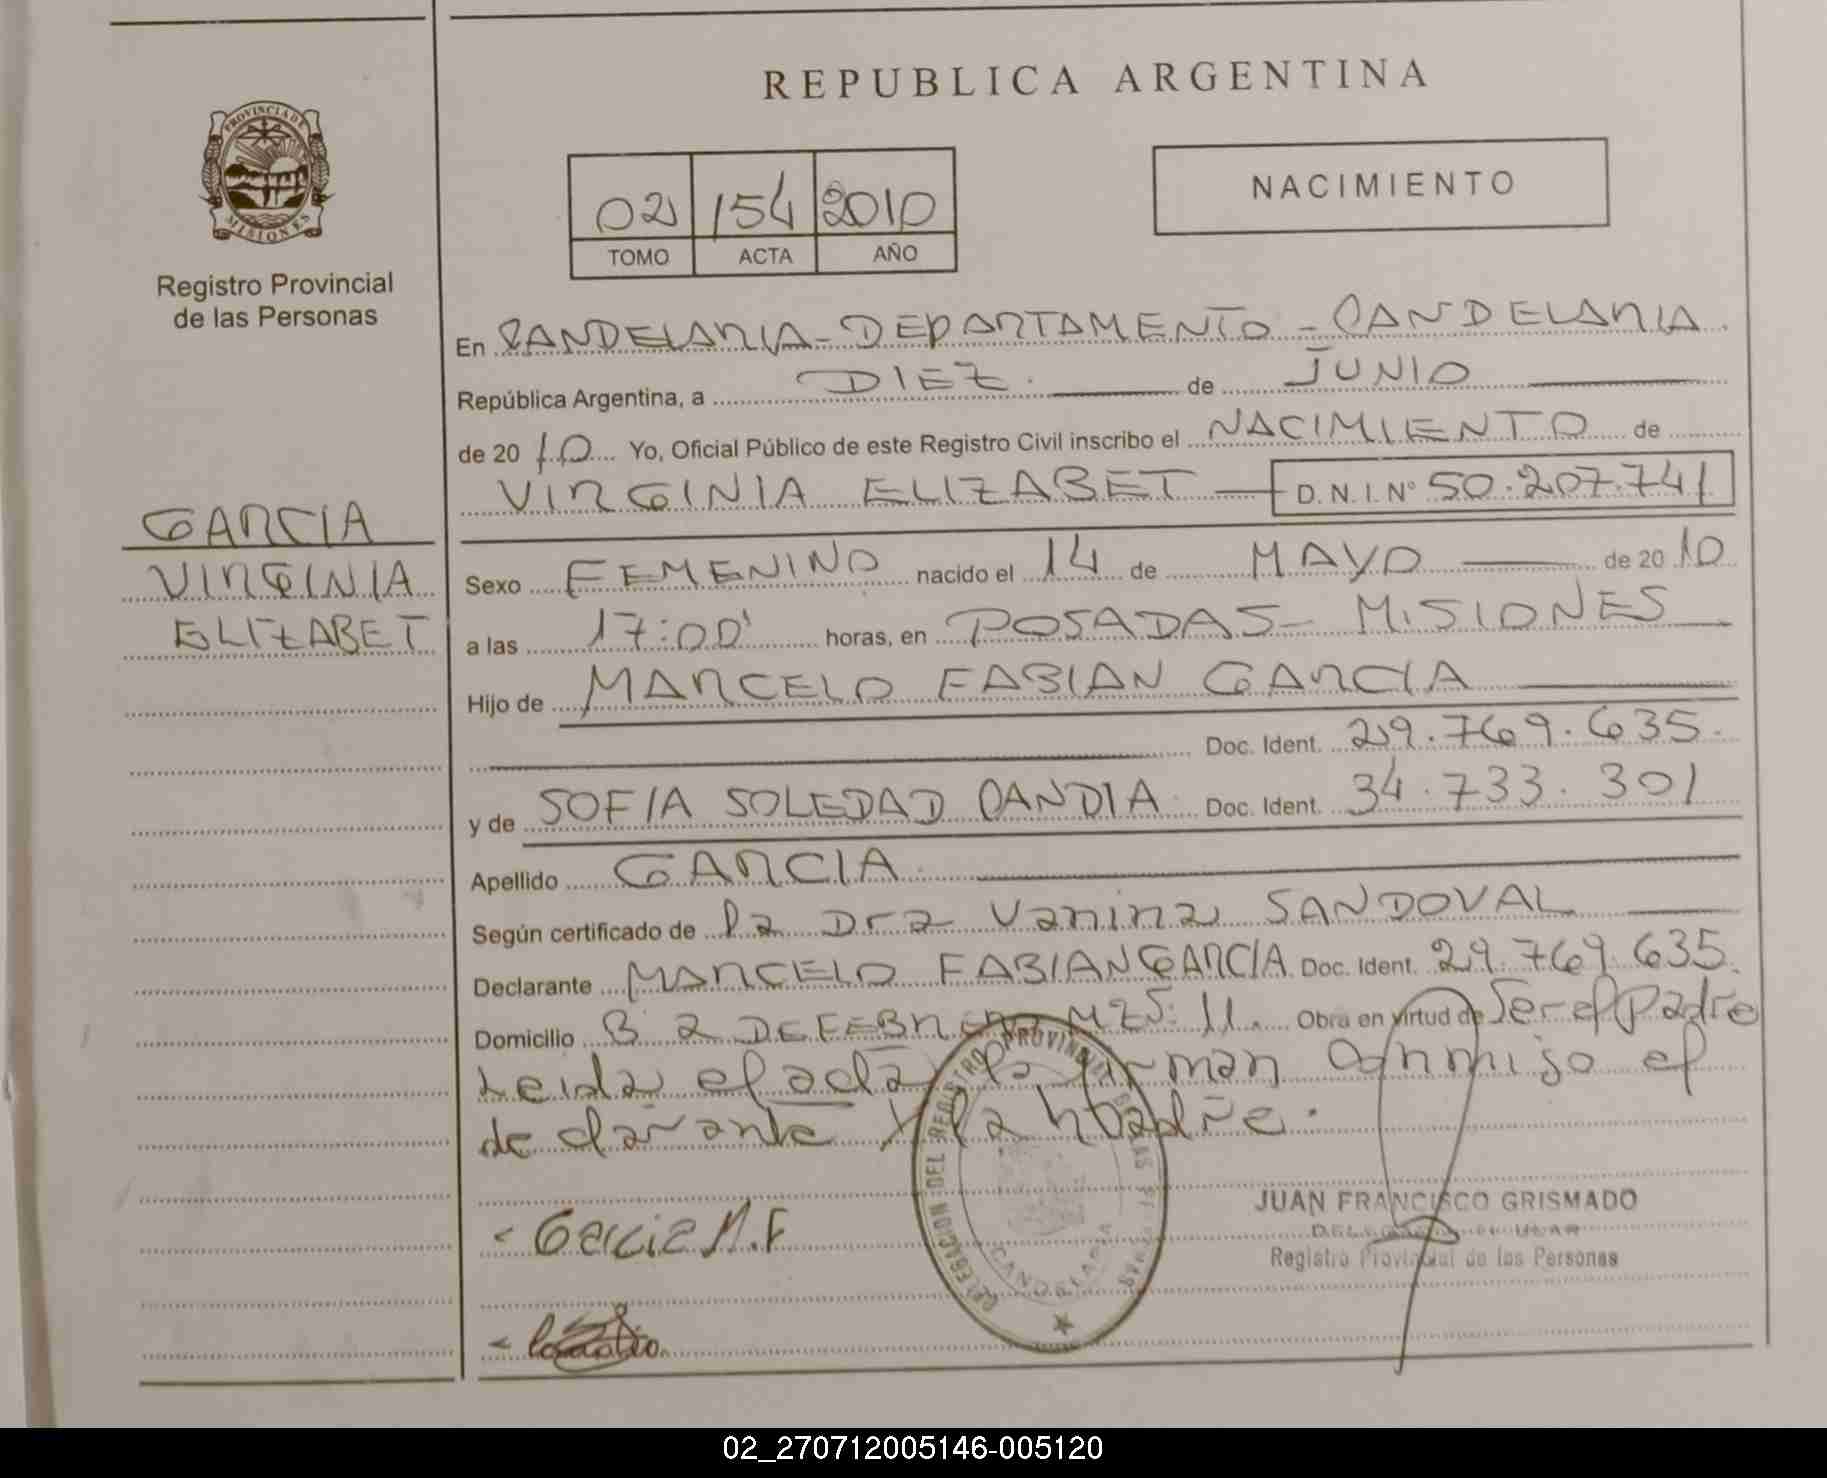 REPUBLICA ARGENTINA
PROVINCIA DE MISIONES
Registro Provincial
de las Personas
02 154 2010
TOMO ACTA AÑO
NACIMIENTO
En CANDELARIA - DEPARTAMENTO - CANDELARIA
República Argentina, a DIEZ de JUNIO
de 2010 Yo, Oficial Público de este Registro Civil inscribo el NACIMIENTO de
VIRGINIA ELIZABET D.N.I. Nº 50.207.741
GARCIA
VIRGINIA
ELIZABET
Sexo FEMENINO nacido el 14 de MAYO de 2010
a las 17:00 horas, en POSADAS - MISIONES
Hijo de MARCELO FABIAN GARCIA
Doc. Ident. 29.769.635
y de SOFIA SOLEDAD CANDIA Doc. Ident. 34.733.301
Apellido GARCIA
Según certificado de la Dra Vanina SANDOVAL
Declarante MARCELO FABIAN GARCIA Doc. Ident. 29.769.635
Domicilio B 2 DE FEBRERO MZS: 11. Obra en virtud de Ser el Padre
Leida el acta la firman conmigo el
declarante y la Madre.
Garcia M.F
DELEGACION DEL REGISTRO PROVINCIAL DE LAS PERSONAS
CANDELARIA
JUAN FRANCISCO GRISMADO
Registro Provincial de las Personas
02_270712005146-005120